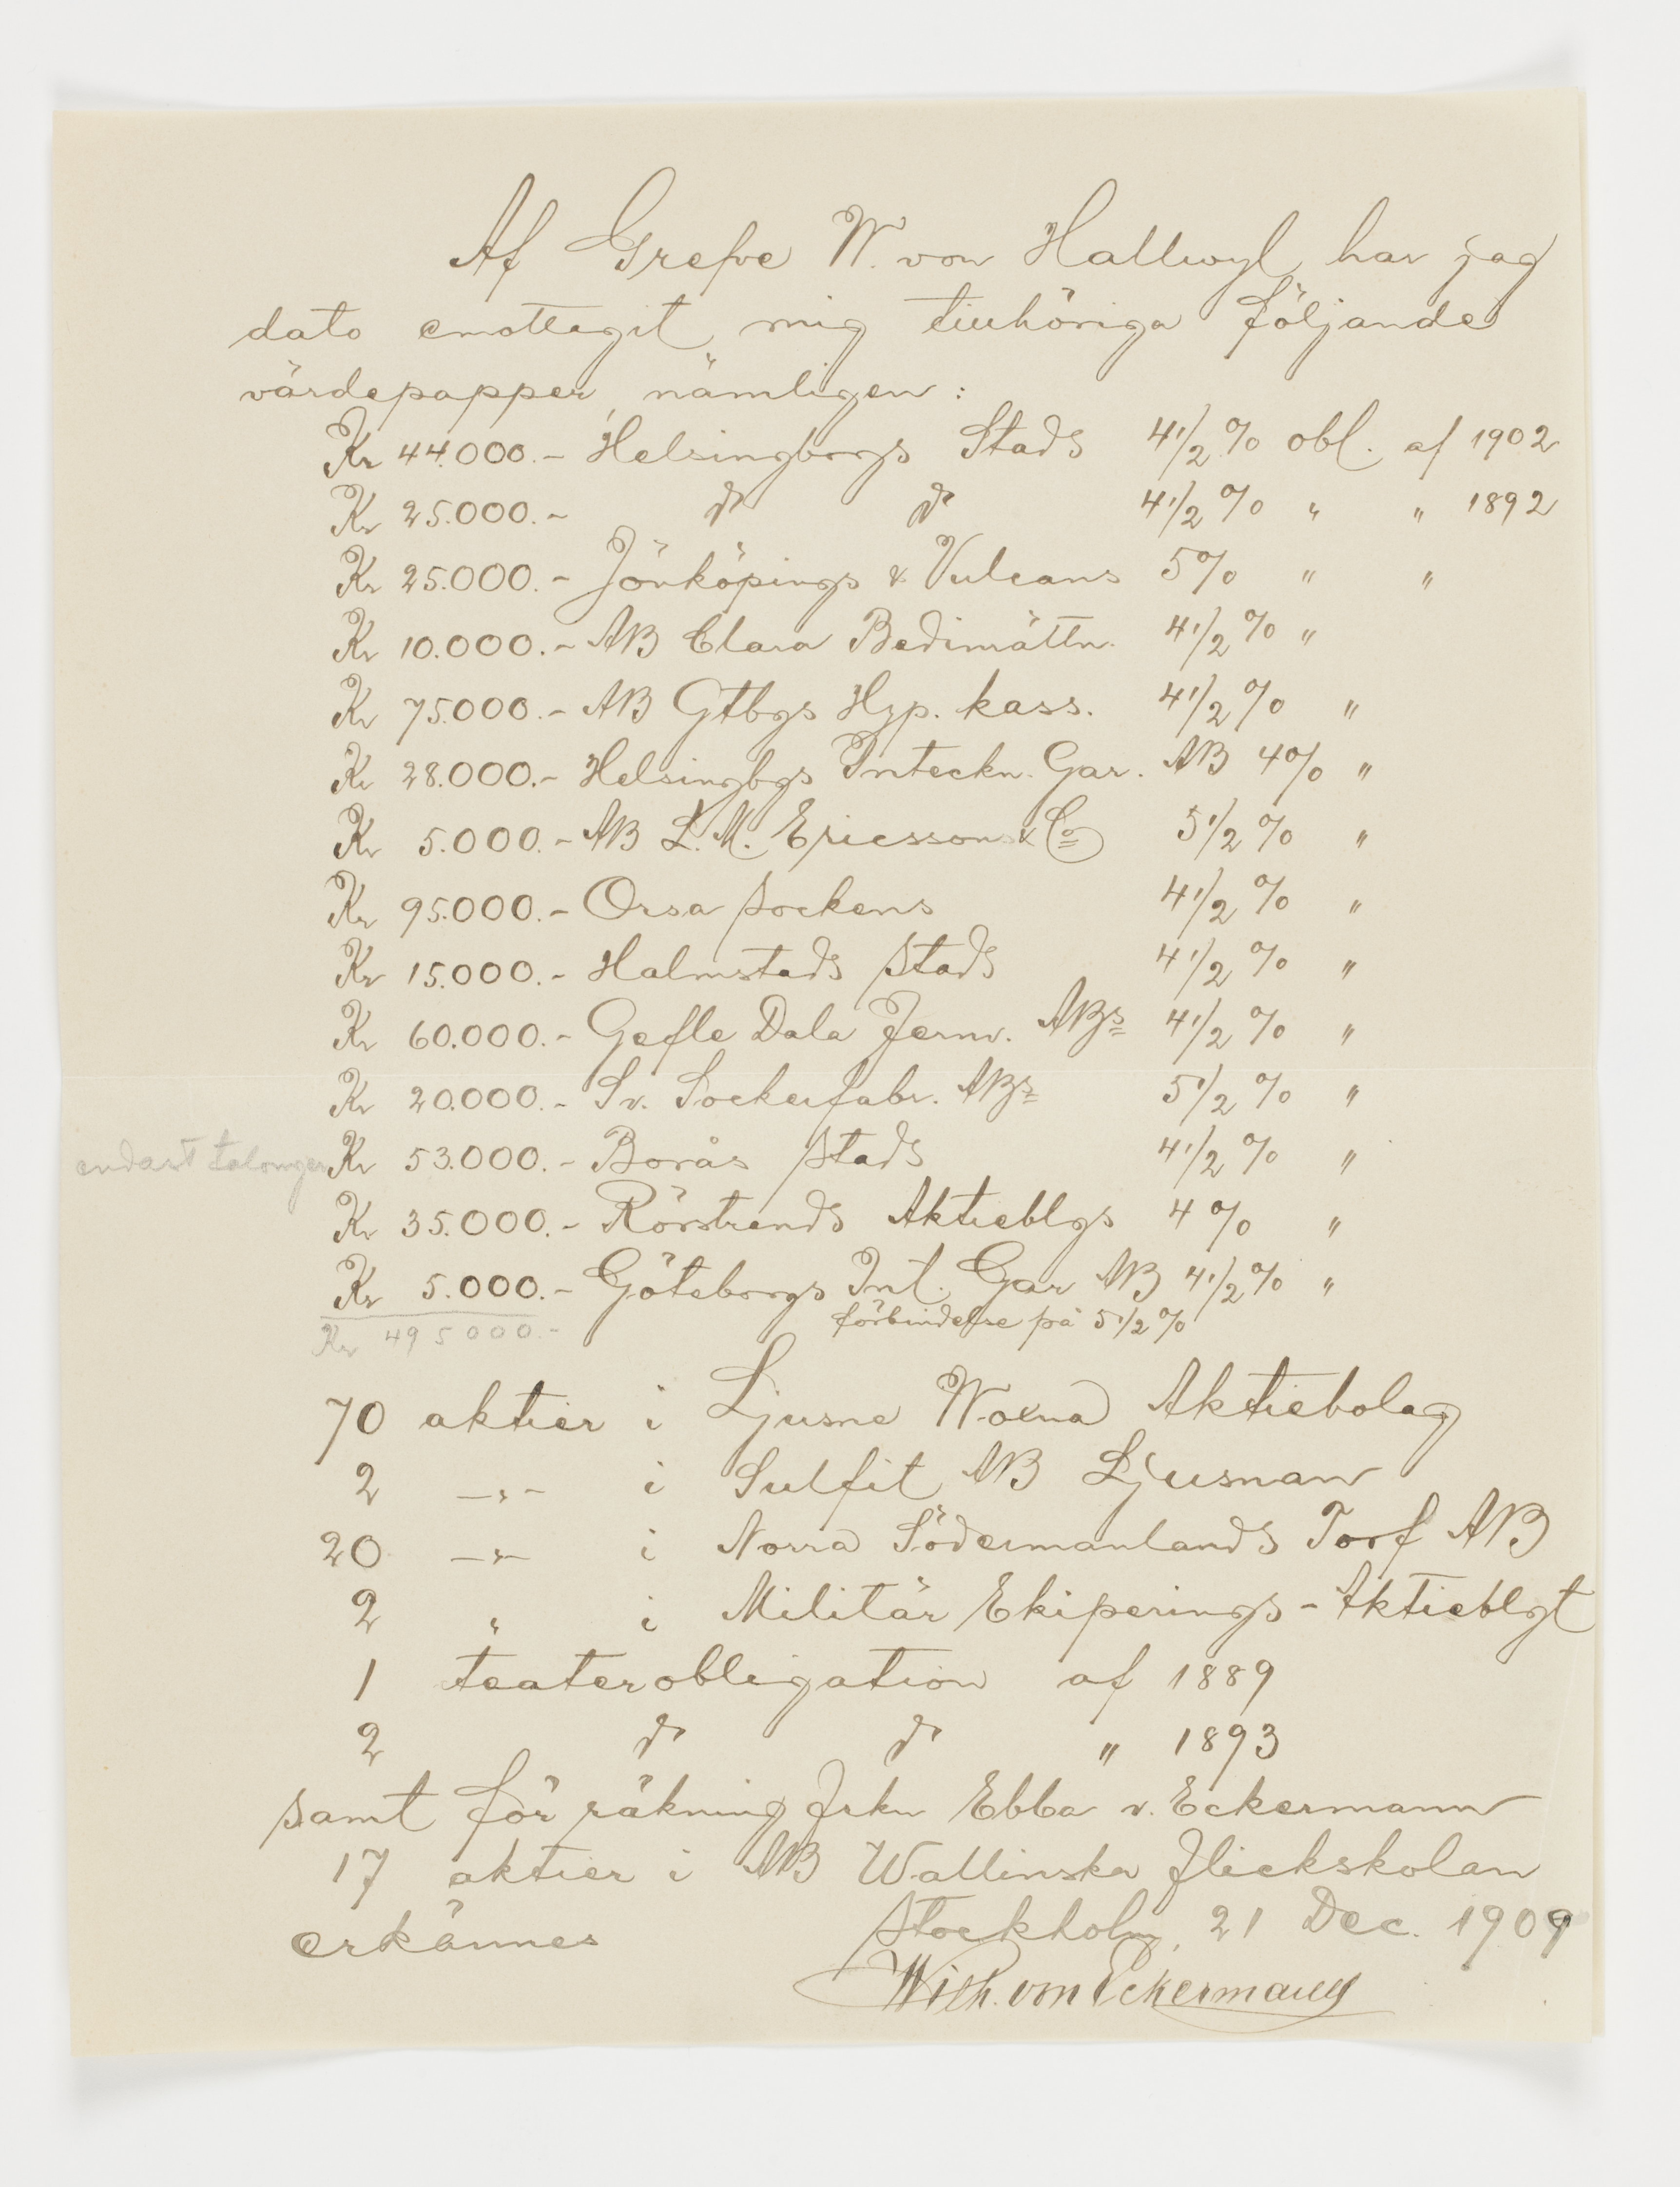 Af Grefve W. von Hallwyl har jag
dato emottagit mig tillhöriga följande
värdepapper, nämligen:
Kr 44.000.- Helsingborgs Stads 4 1/2 % obl. af 1902
Kr 25.000.- do do 4 1/2 % " " 1892
Kr 25.000.- Jönköpings & Vulcans 5% " "
Kr 10.000.- AB Clara 4 1/2 % "
Kr 75.000.- AB Gtbgs Hyp. kass. 4 1/2 % "
Kr 28.000.- Helsingbgs Inteckn. Gar. AB 4% "
Kr 5.000.- AB L. M. Ericsson & Co 5 1/2 % "
Kr 95.000.- Orsa sockens 4 1/2 % "
Kr 15.000.- Halmstads stads 4 1/2 % "
Kr 60.000.- Gefle Dala Jernv. ABs 4 1/2 % "
Kr 20.000.- Sv. Sockerfabr. ABs 5 1/2 % "
endast talonger Kr 53.000.- Borås stads 4 1/2 % "
Kr 35.000.- Rörstrands Aktieblgs 4 % "
Kr 5.000.- Göteborgs Int. Gar AB 4 1/2 % "
förbindelse på 5 1/2 %
Kr 495000.-
70 aktier i Ljusne Woxna Aktiebolag
2 -"- i Sulfit AB Ljusnan
20 -"- i Norra Södermanlands Torf AB
2 " i Militär Ekiperings-Aktieblgt
1 teaterobligation af 1889
2 do do " 1893
samt för räkning Frkn Ebba v. Eckermann
17 aktier i AB Wallinska Flickskolan
erkännes Stockholm, 21 Dec. 1909
Wilh. von Eckermann